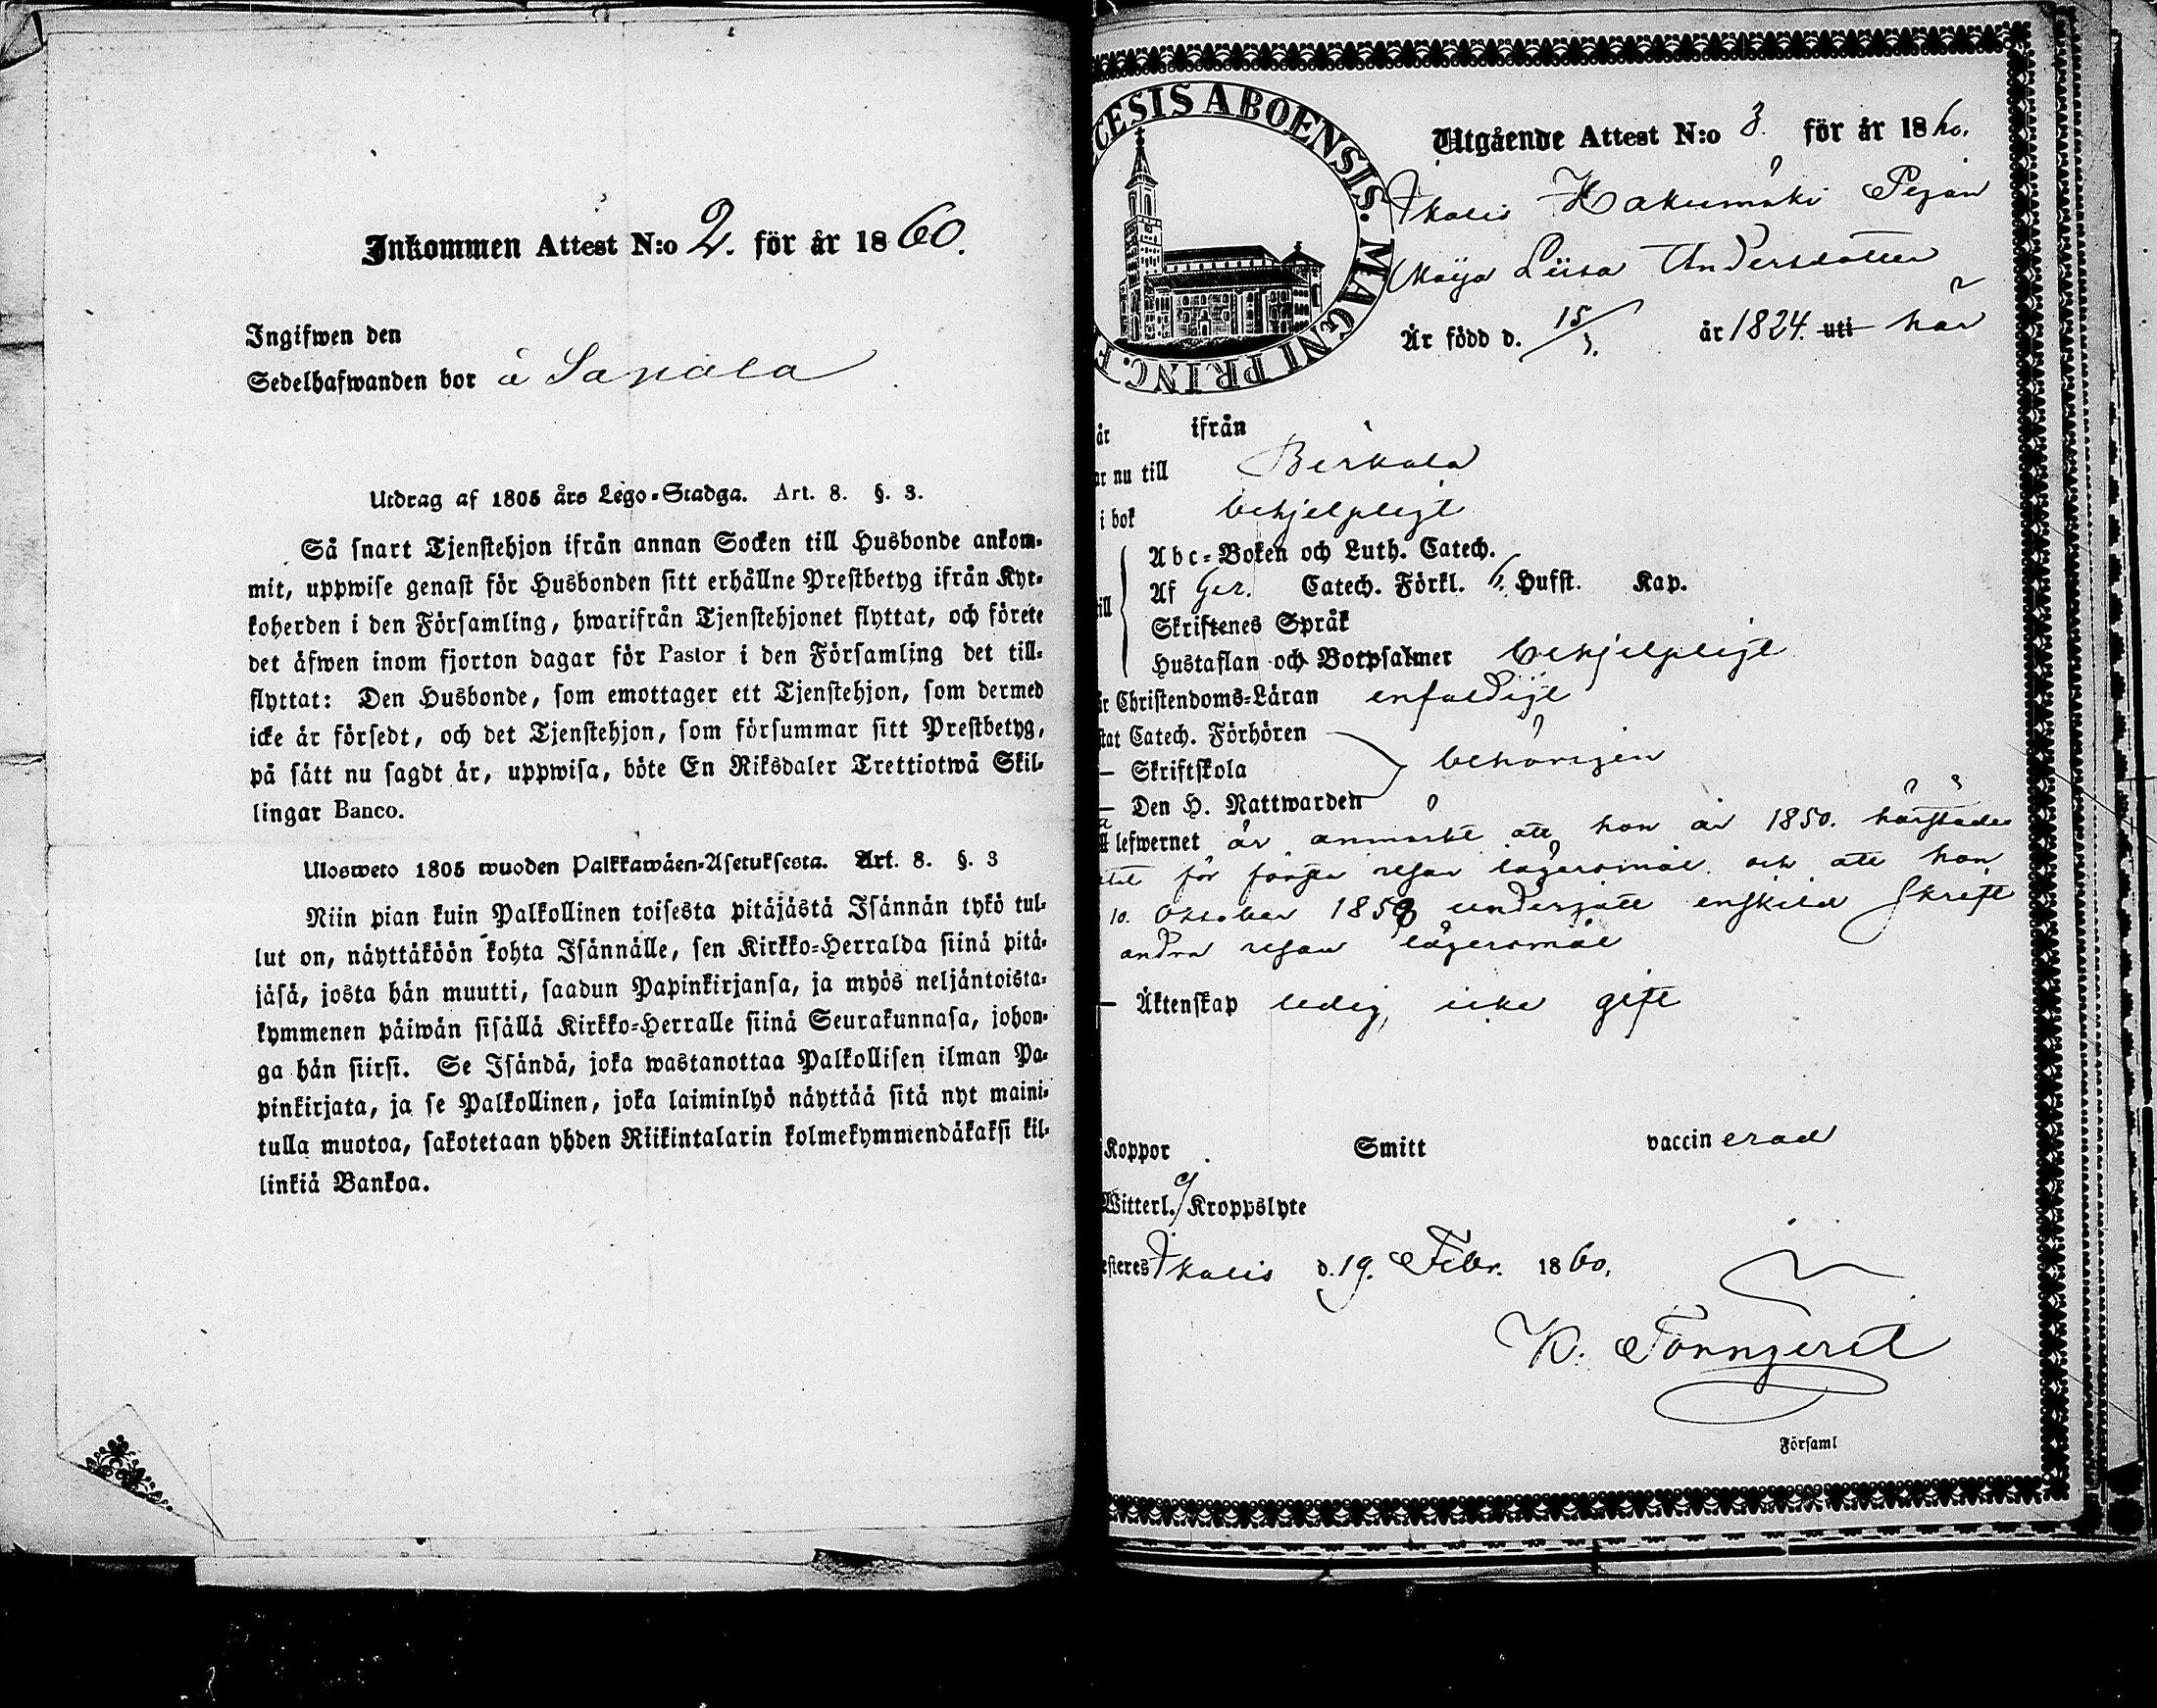 Inkommen Attest N:o 2. för år 1860.
Ingifwen den
Sedelhafwanden bor å Sanala
Utdrag af 1805 års Lego-Stadga. Art. 8. §. 3.
Så snart Tjenstehjon ifrån annan Socken till Husbonde ankom-
mit, uppwise genast för Husbonden sitt erhållne Prestbetyg ifrån Kyr-
koherden i den Församling, hwarifrån Tjenstehjonet flyttat, och förete
det äfwen inom fjorton dagar för Pastor i den Församling det till-
flyttat: Den Husbonde, som emottager ett Tjenstehjon, som dermed
icke är försedt, och det Tjenstehjon, som försummar sitt Prestbetyg,
på sätt nu sagdt är, uppwisa, böte En Riksdaler Trettiotwå Skil-
lingar Banco.
Ulosweto 1805 wuoden Palkkawäen-Asetuksesta. Art. 8. §. 3
Niin pian kuin Palkollinen toisesta pitäjästä Isännän tykö tul-
lut on, näyttäköön kohta Isännälle, sen Kirkko-Herralda siinä pitä-
jäsä, josta hän muutti, saadun Papinkirjansa, ja myös neljäntoista-
kymmenen päiwän sisällä Kirkko-Herralle siinä Seurakunnasa, johon-
ga hän siirsi. Se Isändä, joka wastanottaa Palkollisen ilman Pa-
pinkirjata, ja se Palkollinen, joka laiminlyö näyttää sitä nyt maini-
tulla muotoa, sakotetaan yhden Riikintalarin kolmekymmendäkaksi kil-
linkiä Bankoa.
CESIS ABOENSIS. MAGNI PRINC. F
Utgående Attest N:o 3. för år 1860.
Ikalis Hakumäki Pigan
Maija Liisa Andersdotter
Är född d. 15/3. år 1824. uti här
år ifrån
ar nu till Birkala
i bok behjelpligt
Abc-Boken och Luth. Catech.
ill Af Ger. Catech. Förkl. 6. Hufst. Kap.
Skriftenes Språk
Hustaflan och Botpsalmer behjelpligt
är Christendoms-Läran enfaldigt
stat Catech. Förhören
— Skriftskola behörigen
— Den H. Nattwarden
lefwernet är anmärkt att hon år 1850. härstädes
för första resan lägersmål och att hon
10. Oktober 1859 undergått enskild Skrift
andra resan lägersmål
— Äktenskap ledig, icke gift
Koppor Smitt vaccinerad
Witterl. Kroppslyte
esteres Ikalis d. 19. Febr. 1860.
K. Törngerd
Församl